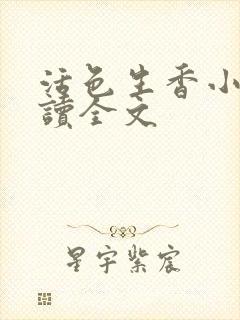 活色生香小
讀全文
星宇紫宸